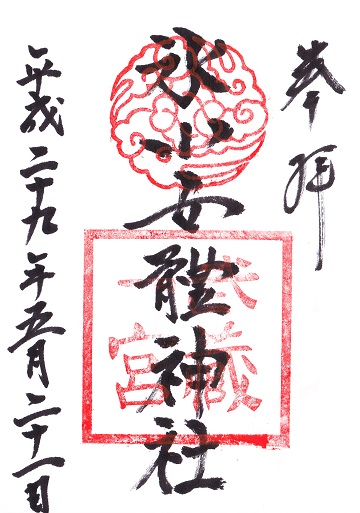 奉拝
氷川女體神社
武蔵
一宮
平成二十九年五月二十一日